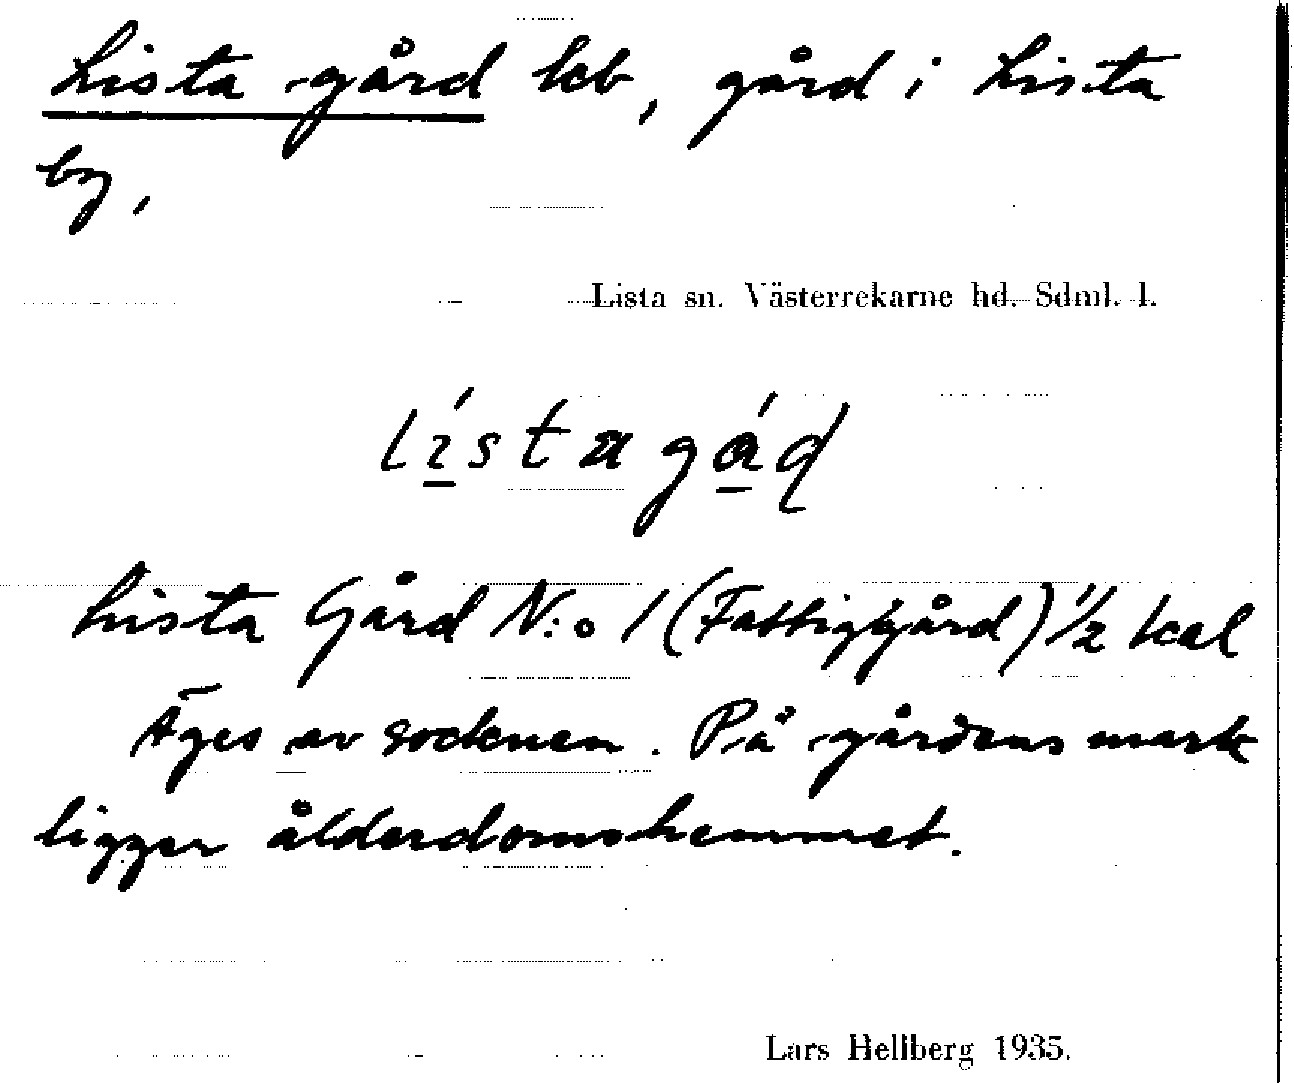 Lista gård lcb, gård i Lista
by,
Lista sn. Västerrekarne hd. Sdml. l.
lístagáḍ
Lista Gård N:o 1 (Fattiggård) 1/2 kal
Äges av socknen. På gårdens mark
ligger ålderdomshemmet.
Lars Hellberg 1935.